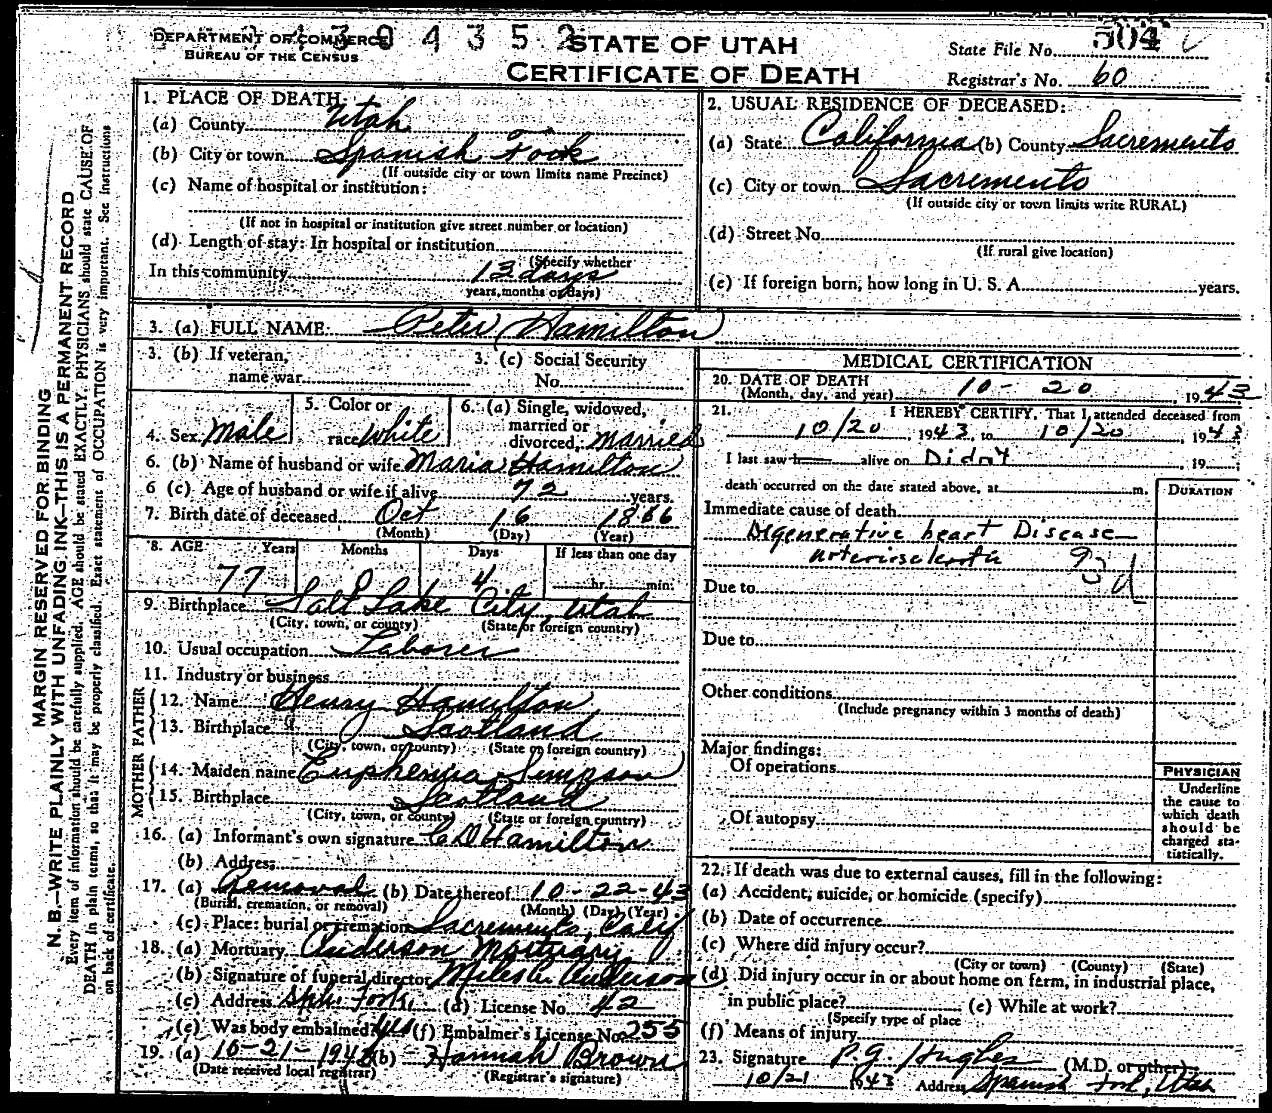 DEPARTMENT OF COMMERCE
BUREAU OF THE CENSUS
STATE OF UTAH
CERTIFICATE OF DEATH
State File No. 504
Registrar's No. 60
MARGIN RESERVED FOR BINDING
N. B.—WRITE PLAINLY WITH UNFADING INK—THIS IS A PERMANENT RECORD
Every item of information should be carefully supplied. AGE should be stated EXACTLY. PHYSICIANS should state CAUSE OF
DEATH in plain terms, so that it may be properly classified. Exact statement of OCCUPATION is very important. See instructions
on back of certificate.
1. PLACE OF DEATH
(a) County Utah
(b) City or town Spanish Fork
(If outside city or town limits name Precinct)
(c) Name of hospital or institution:
(If not in hospital or institution give street number or location)
(d) Length of stay: In hospital or institution
(Specify whether
In this community 13 days
years, months or days)
2. USUAL RESIDENCE OF DECEASED:
(a) State California (b) County Sacremento
(c) City or town Sacremento
(If outside city or town limits write RURAL)
(d) Street No.
(If rural give location)
(e) If foreign born, how long in U. S. A. years.
3. (a) FULL NAME Peter Hamilton
3. (b) If veteran,
name war
3. (c) Social Security
No.
4. Sex Male
5. Color or
race White
6. (a) Single, widowed,
married or
divorced, married
6. (b) Name of husband or wife Maria Hamilton
6 (c) Age of husband or wife if alive 72 years.
7. Birth date of deceased Oct 16 1866
(Month) (Day) (Year)
8. AGE Years Months Days If less than one day
77 0 4 hr. min.
9. Birthplace Salt Lake City, Utah
(City, town, or county) (State or foreign country)
10. Usual occupation Laborer
11. Industry or business
FATHER
12. Name Henry Hamilton
13. Birthplace Scotland
(City, town, or county) (State or foreign country)
MOTHER
14. Maiden name Euphemia Simpson
15. Birthplace Scotland
(City, town, or county) (State or foreign country)
16. (a) Informant's own signature C D Hamilton
(b) Address
17. (a) Removal (b) Date thereof 10-22-43
(Burial, cremation, or removal) (Month) (Day) (Year)
(c) Place: burial or cremation Sacremento, Calif
18. (a) Mortuary Anderson Mortuary
(b) Signature of funeral director Anderson
(c) Address Spn. Fork, (d) License No. 42
(e) Was body embalmed? yes (f) Embalmer's License No. 255
19. (a) 10-21-1943 (b) Hannah Brown
(Date received local registrar) (Registrar's signature)
MEDICAL CERTIFICATION
20. DATE OF DEATH
(Month, day, and year) 10-20, 1943
21. I HEREBY CERTIFY, That I attended deceased from
10/20, 1943, to 10/20, 1943
I last saw h alive on Didn't, 19
death occurred on the date stated above, at m.
DURATION
Immediate cause of death
Degenerative heart Disease
93 d
Due to
Due to
Other conditions
(Include pregnancy within 3 months of death)
Major findings:
Of operations
Of autopsy
PHYSICIAN
Underline
the cause to
which death
should be
charged sta-
tistically.
22. If death was due to external causes, fill in the following:
(a) Accident, suicide, or homicide (specify)
(b) Date of occurrence
(c) Where did injury occur?
(City or town) (County) (State)
(d) Did injury occur in or about home on farm, in industrial place,
in public place? (e) While at work?
(Specify type of place
(f) Means of injury
23. Signature P. G. Hughes (M.D. or other)
10/21 1943 Address Spanish Fork, Utah